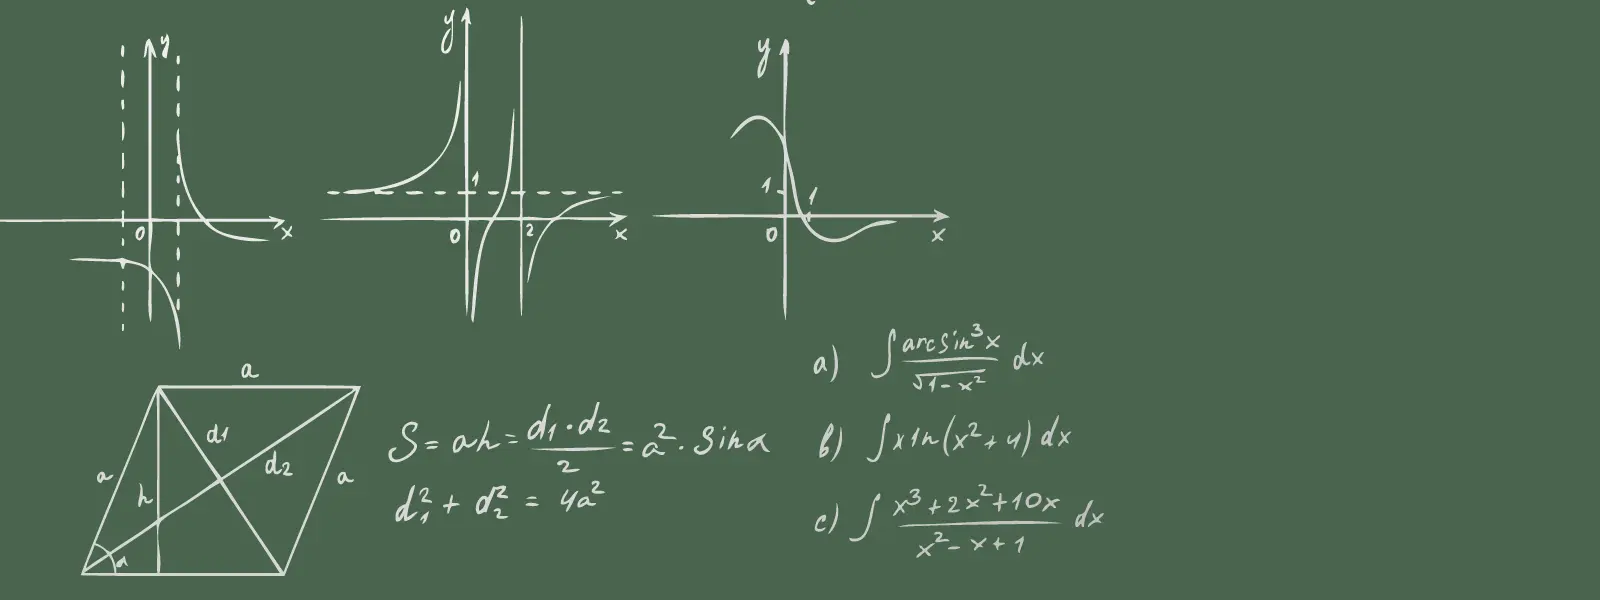 y
0
x
y
1
0
2
x
y
1
1
0
x
a
a
d1
d2
a
h
α
S = ah = d1·d2/2 = a²·sinα
d1² + d2² = 4a²
a) ∫ arcsin³x/√1-x² dx
b) ∫xln(x²+4)dx
c) ∫ x³+2x²+10x/x²-x+1 dx